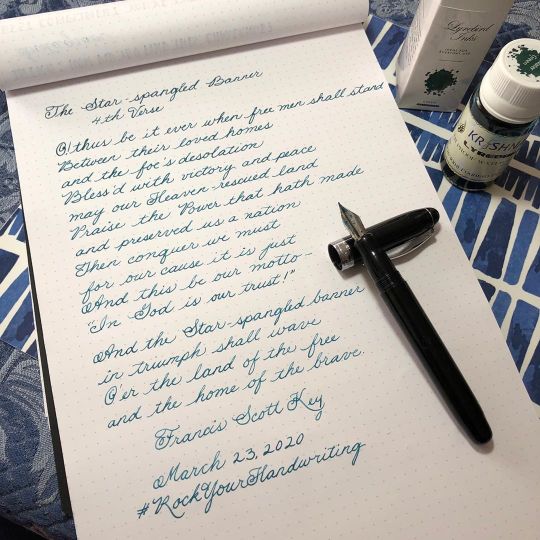 The Star-spangled Banner
4th Verse
O! thus be it ever when free men shall stand
Between their loved homes
and the foe's desolation
Bless'd with victory and peace
may our Heaven-rescued land
Praise the Power that hath made
and preserved us a nation
Then conquer we must
for our cause it is just
And this be our motto –
"In God is our trust!"
And the Star-spangled banner
in triumph shall wave
O'er the land of the free
and the home of the brave.
Francis Scott Key
March 23, 2020
#RockYourHandwriting
Lyrebird
Inks
KRISHNA